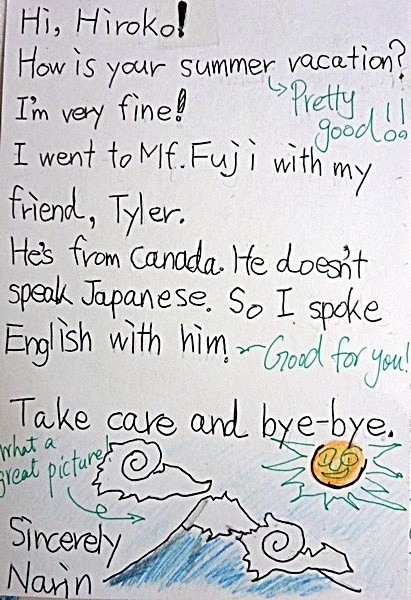 Hi, Hiroko!
How is your summer vacation?
Pretty
good!!
I'm very fine!
I went to Mt. Fuji with my
friend, Tyler.
He's from Canada. He doesn't
speak Japanese. So I spoke
English with him.
Good for you!
Take care and bye-bye.
What a
great picture!
Sincerely
Narin